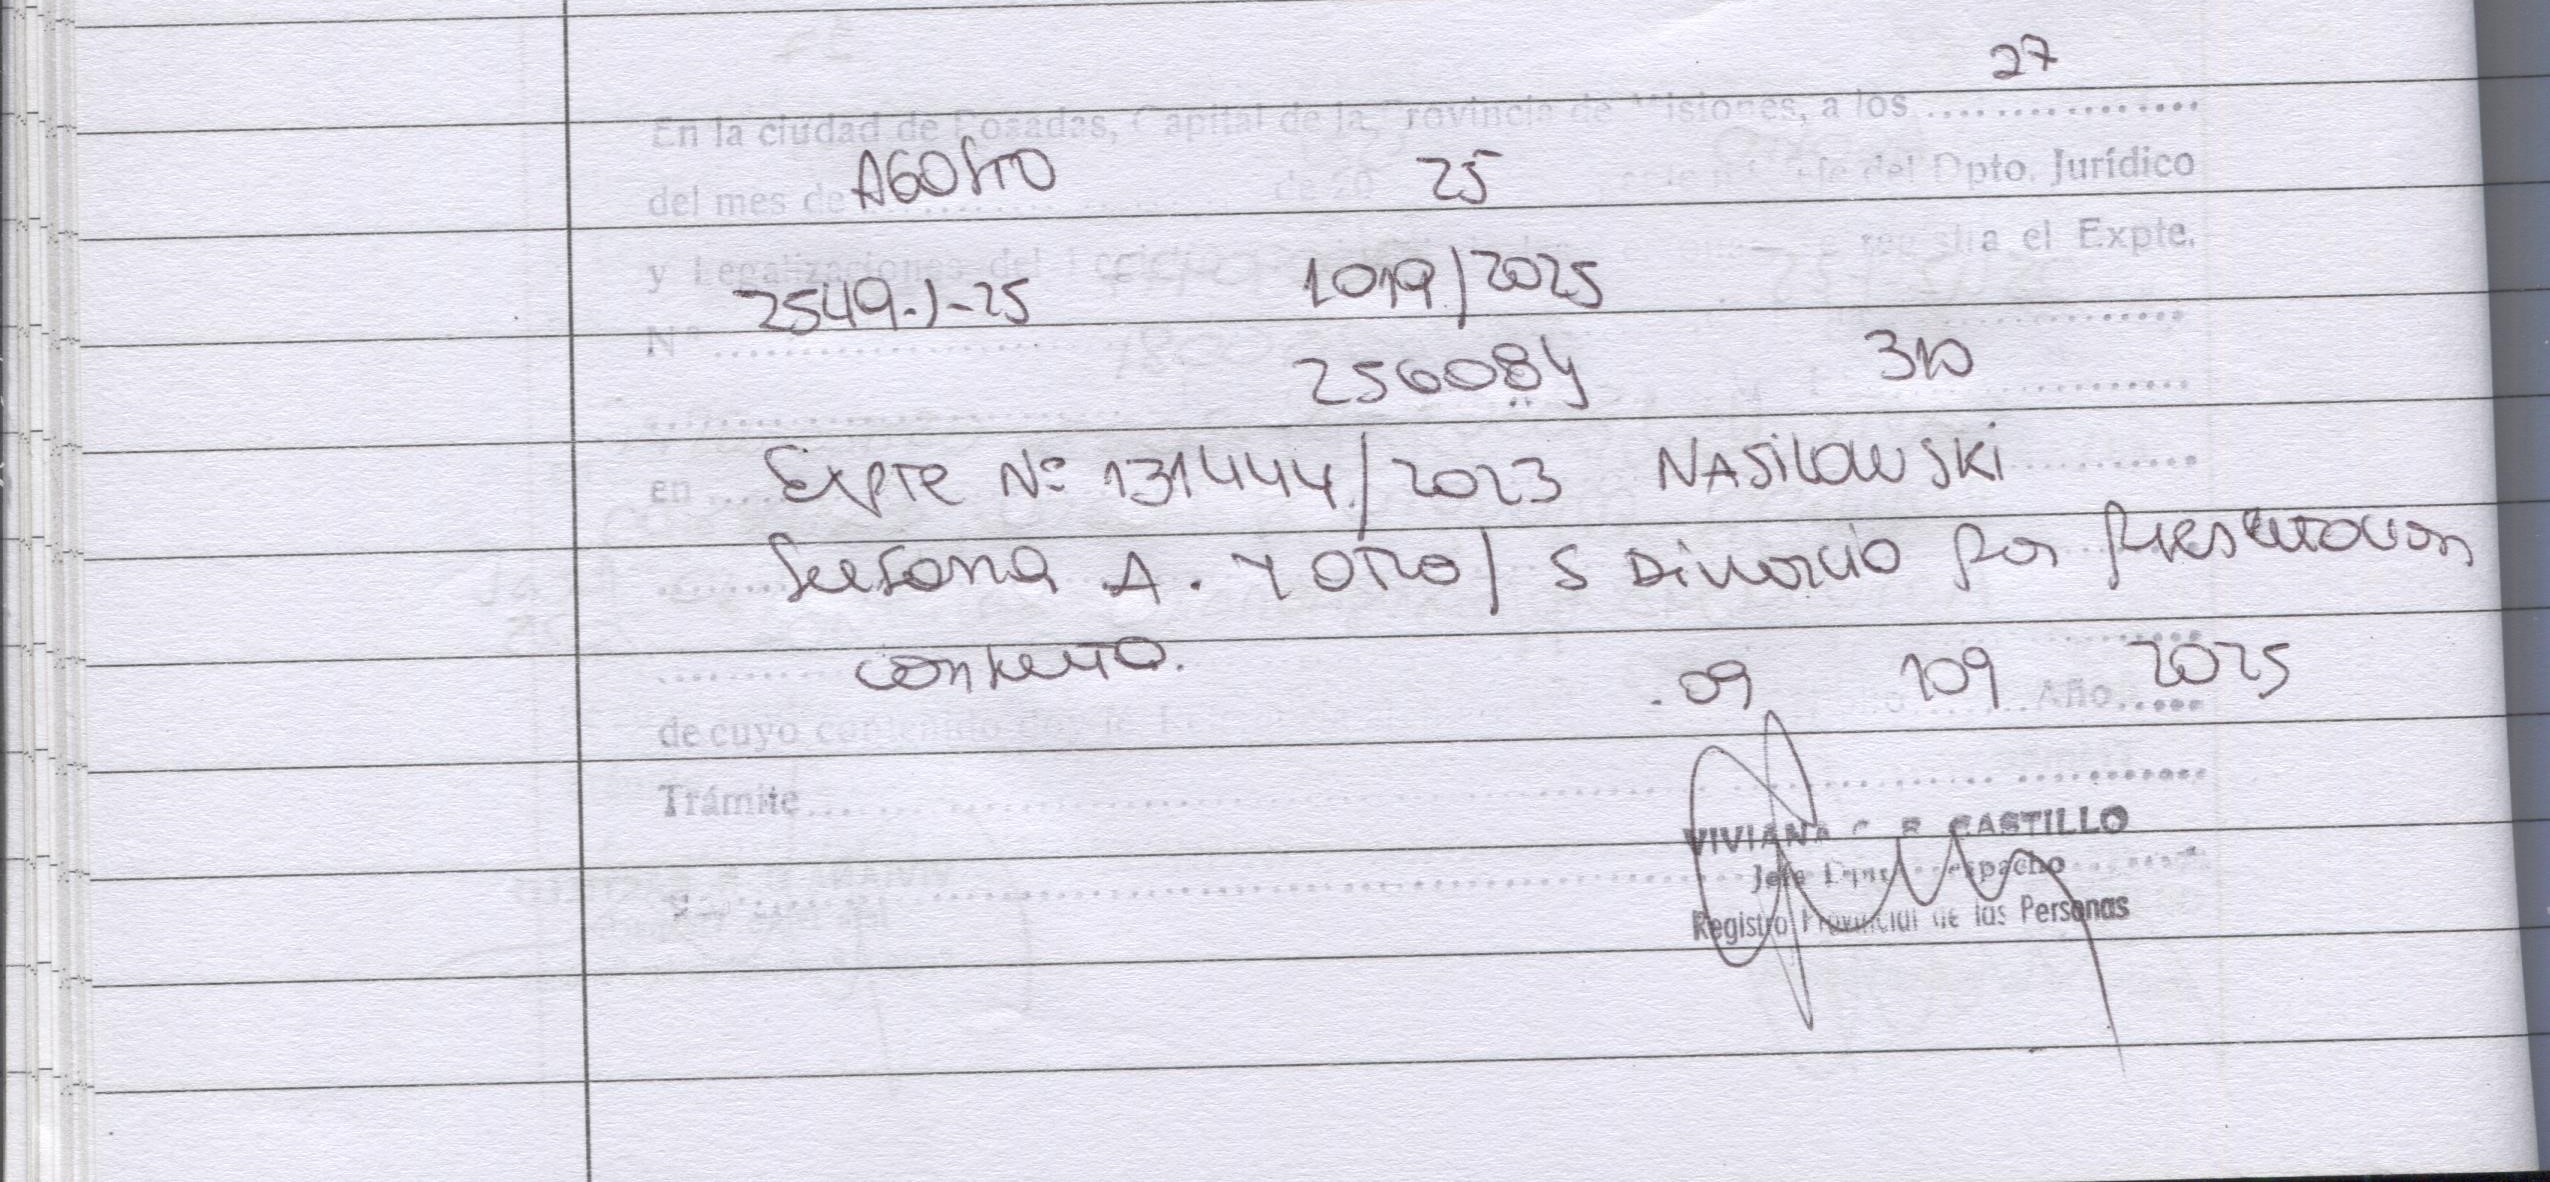 27
En la ciudad de Posadas, Capital de la Provincia de Misiones, a los
AGOSTO 25
del mes de de 20 del Dpto. Jurídico
y Legalizaciones del el Expte.
2549-J-25 1019/2025
Nº
256084 310
Expte Nº 131444/2023 NASILOWSKI
en
A. Y OTRO/ S Divorcio por Presentacion
conjunta. 09 109 2025
Año
de cuyo contenido
Trámite
VIVIANA CASTILLO
Jefe Despacho
Registro Provincial de las Personas